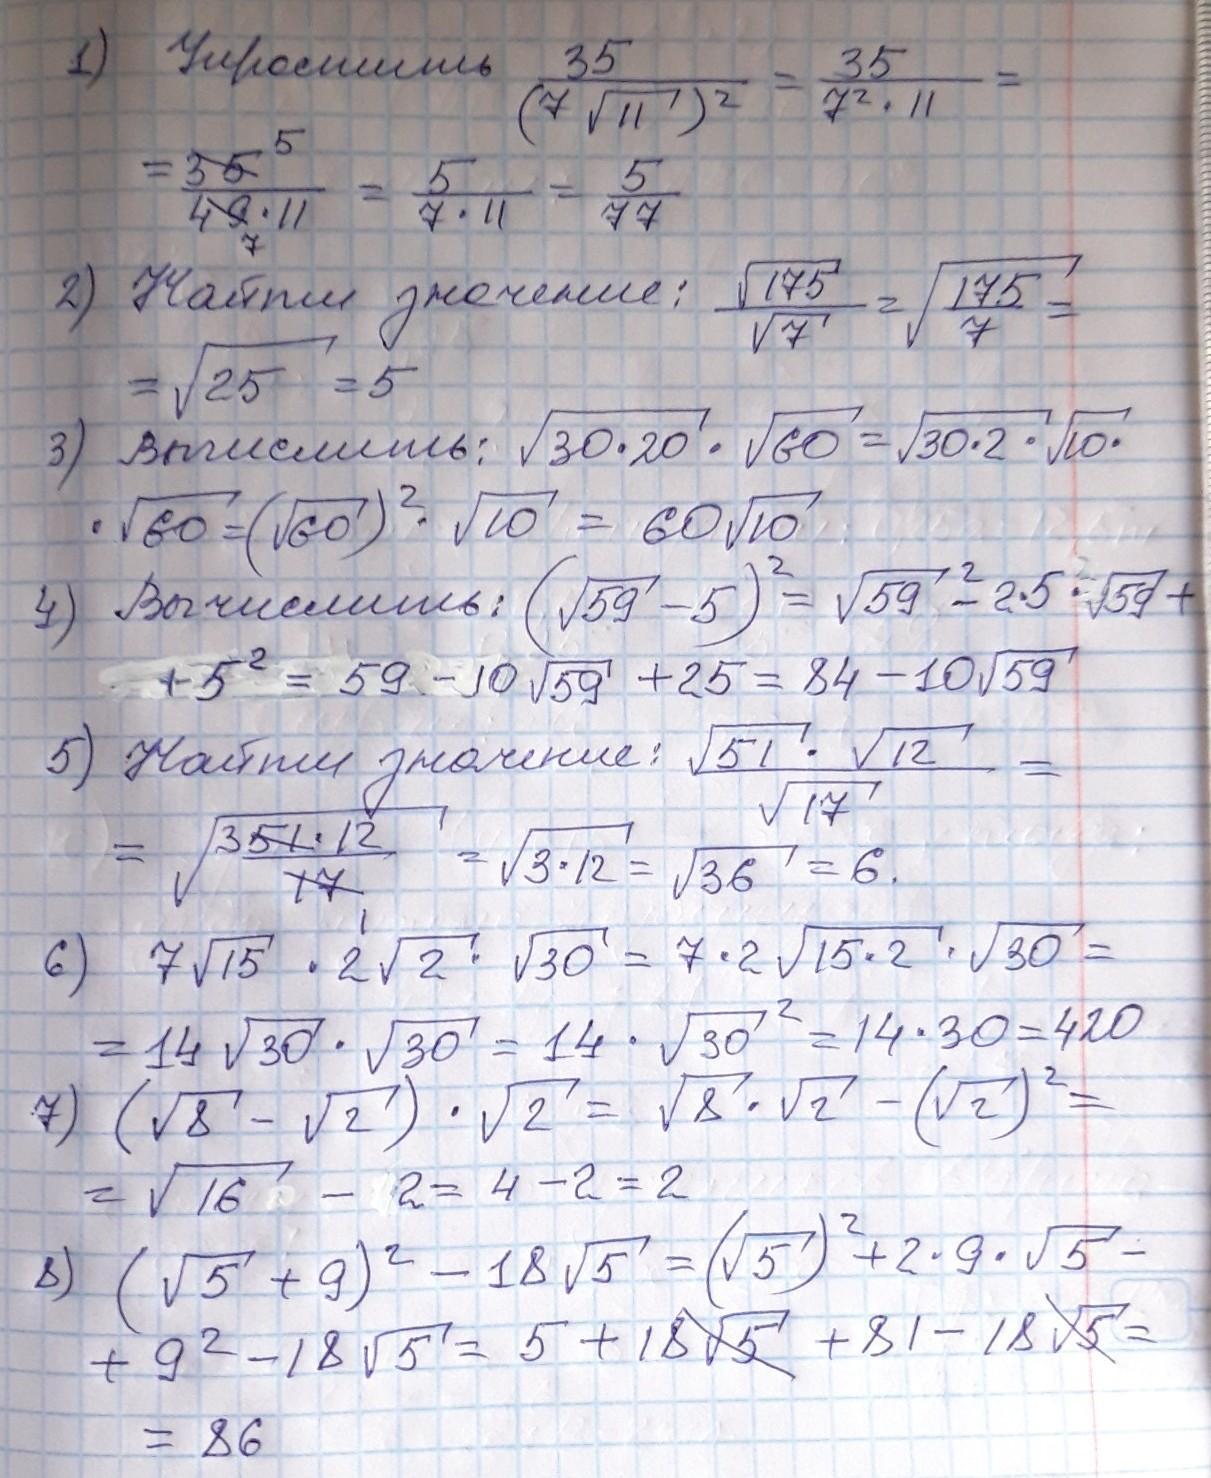 1) Упростить 35/(7√11)² = 35/7²·11 =
= 35 5/49·11 7 = 5/7·11 = 5/77
2) Найти значение: √175/√7 = √175/7 =
= √25 = 5
3) Вычислить: √30·20 · √60 = √30·2 · √10 ·
· √60 = (√60)² · √10 = 60√10
4) Вычислить: (√59 - 5)² = √59² - 2·5·√59 +
+ 5² = 59 - 10√59 + 25 = 84 - 10√59
5) Найти значение: √51 · √12/√17 =
= √3 51·12/17 1 = √3·12 = √36 = 6.
6) 7√15 · 2√2 · √30 = 7·2√15·2 · √30 =
= 14√30 · √30 = 14 · √30² = 14·30 = 420
7) (√8 - √2) · √2 = √8 · √2 - (√2)² =
= √16 - 2 = 4 - 2 = 2
8) (√5 + 9)² - 18√5 = (√5)² + 2·9·√5 -
+ 9² - 18√5 = 5 + 18√5 + 81 - 18√5 =
= 86